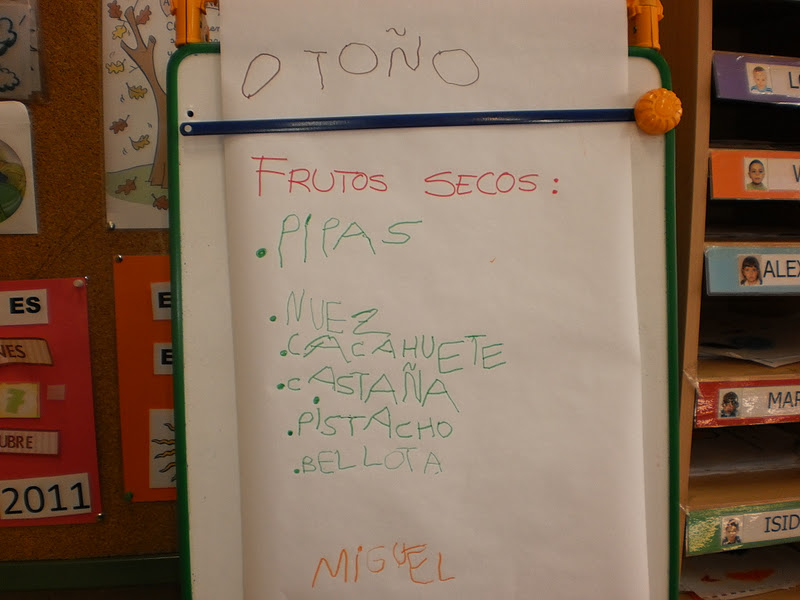 OTOÑO
FRUTOS SECOS:
.PIPAS
.NUEZ
.CACAHUETE
.CASTAÑA
.PISTACHO
.BELLOTA
MIGUEL
ES
7
UBRE
2011
E
E
ALEX
MAR
ISID